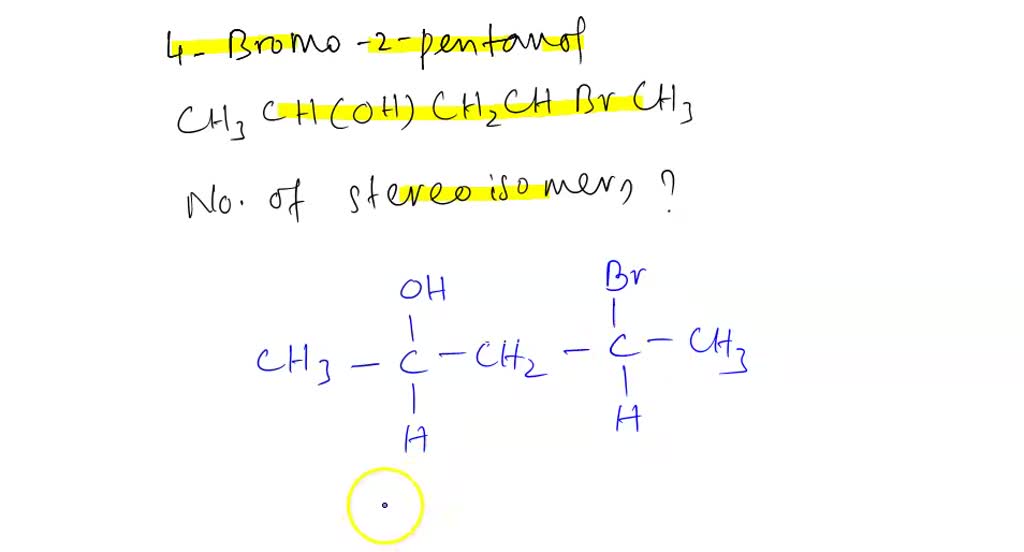 4-Bromo-2-pentanol
CH3 CH(OH) CH2CH Br CH3
No. of stereoisomers ?
OH Br
CH3 - C - CH2 - C - CH3
H H